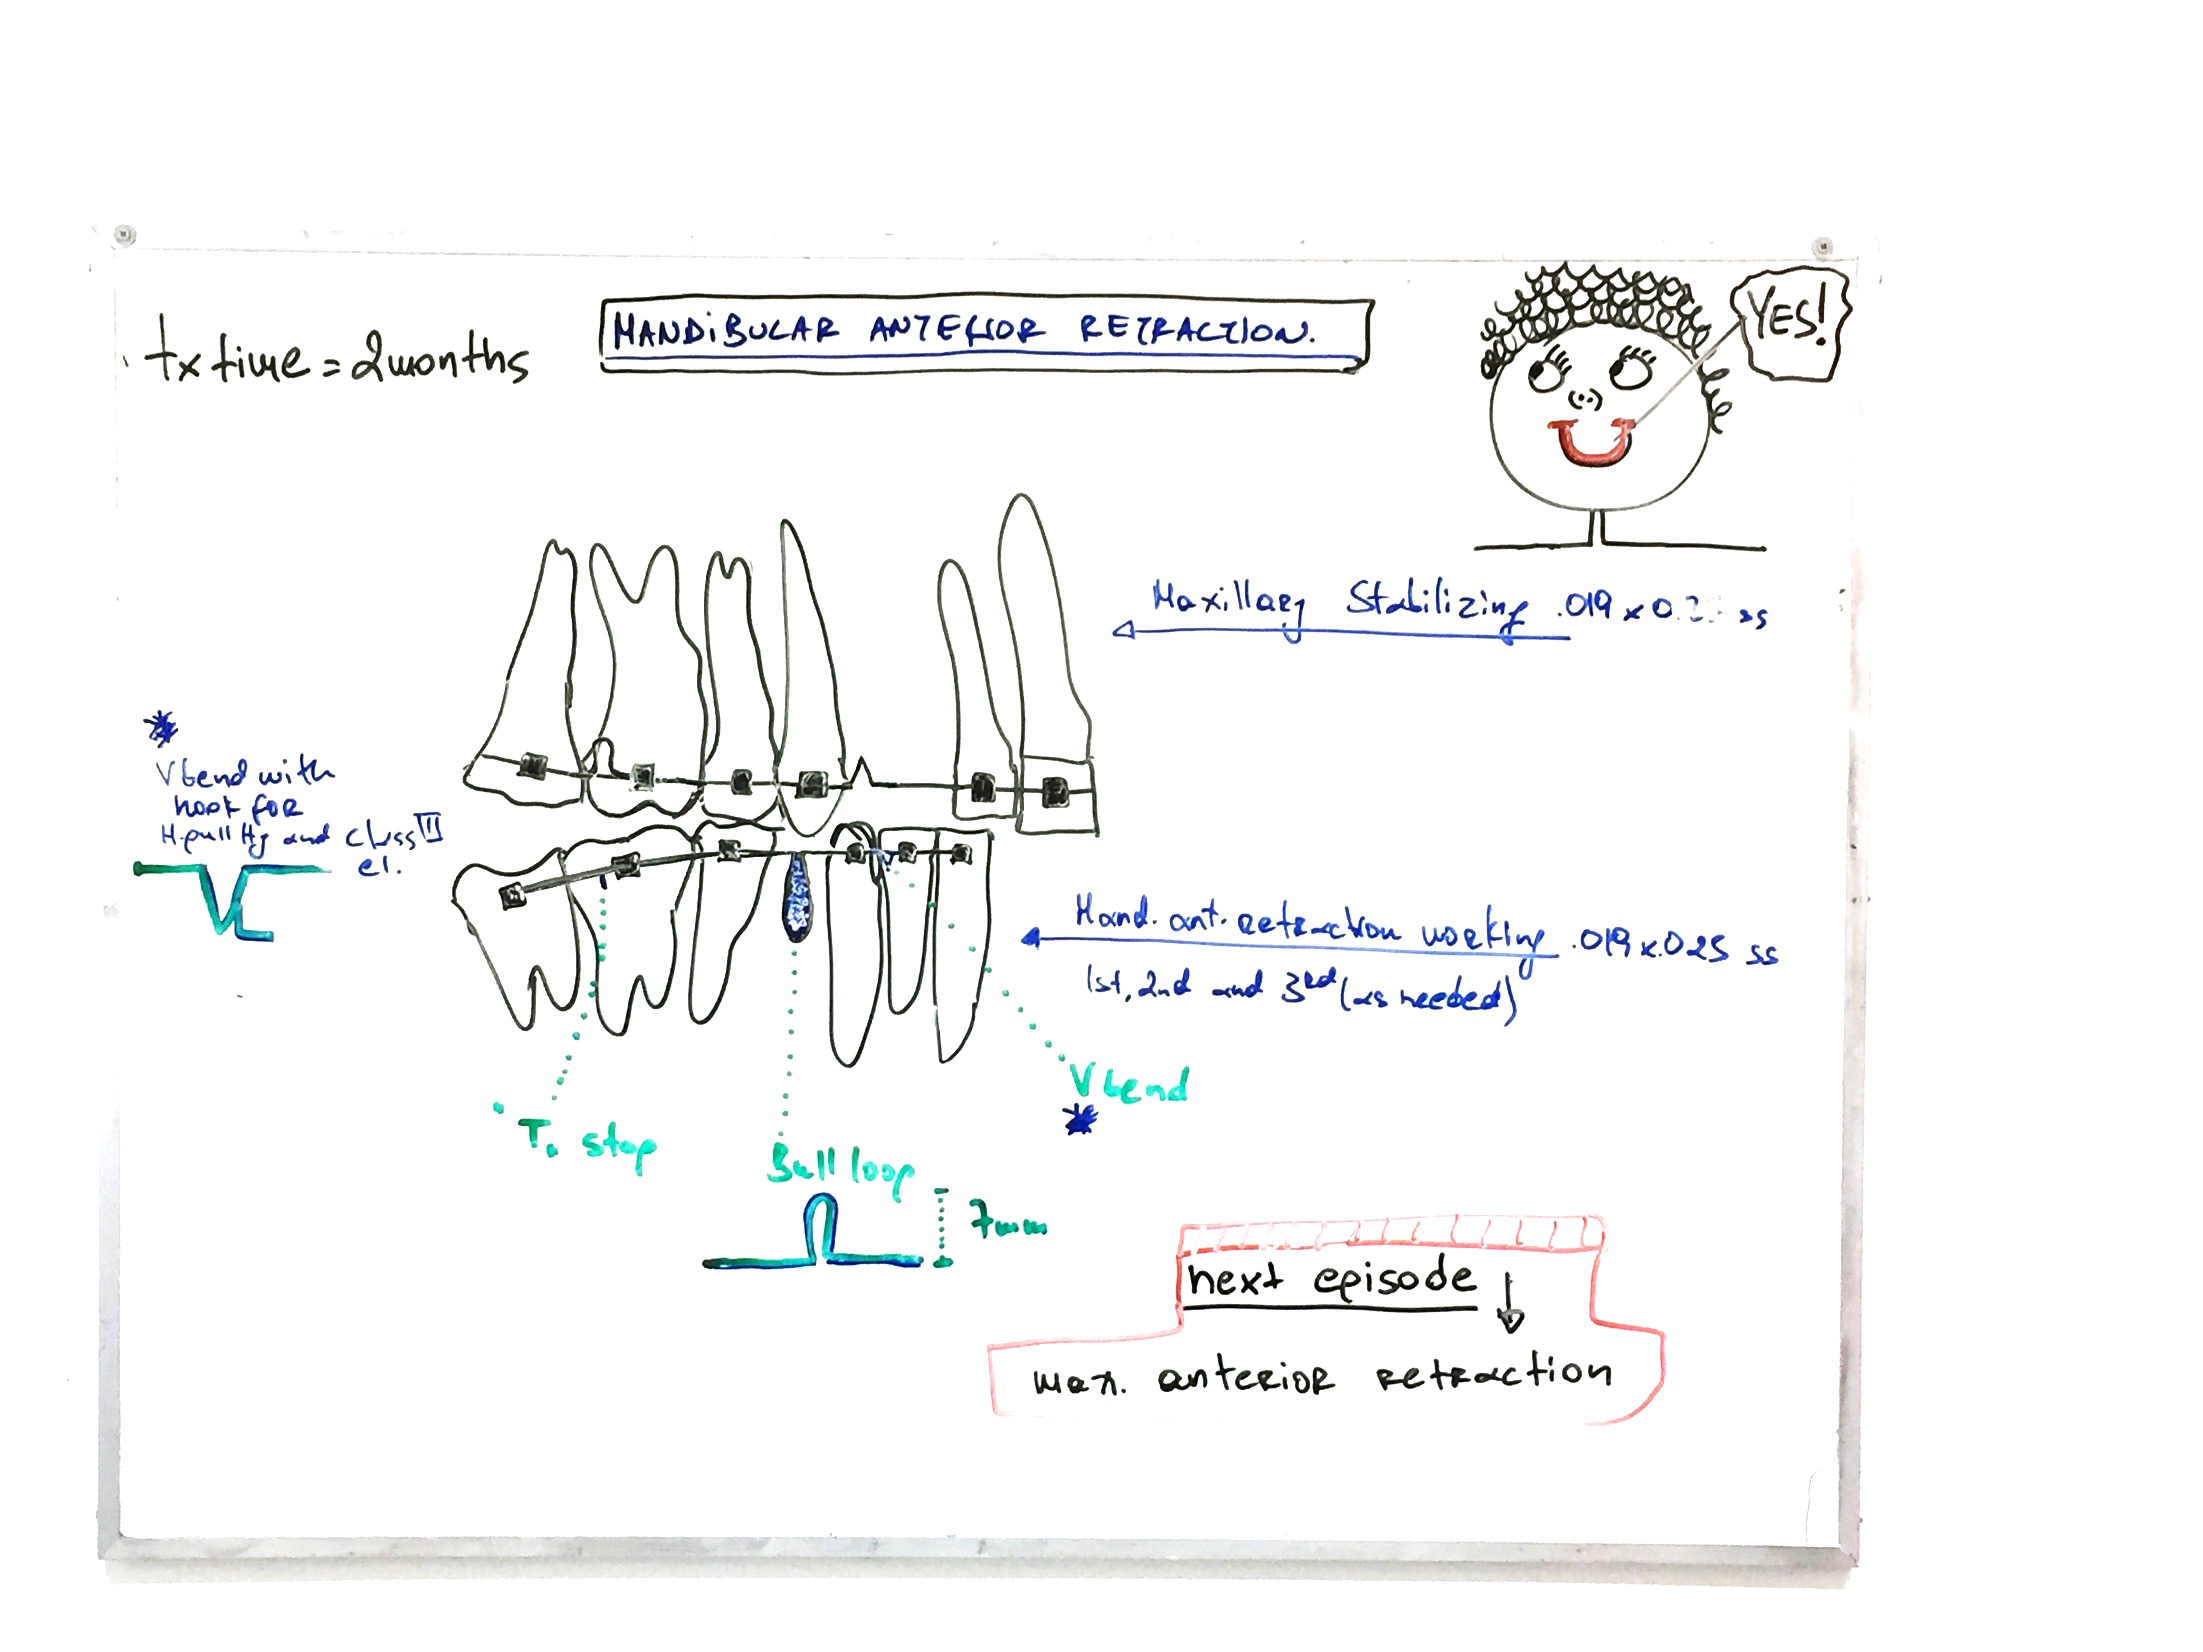 tx time = 2 months
MANDIBULAR ANTERIOR RETRACTION.
YES!
Maxillary Stabilizing .019 x 0.2 ss
V bend with
hook for
H.pull Hg and class II
el.
Mand. ant. Retraction working .019 x .025 ss
1st, 2nd and 3rd (as needed)
V bend
T. stop
Bull loop
7mm
next episode ↓
max. anterior retraction